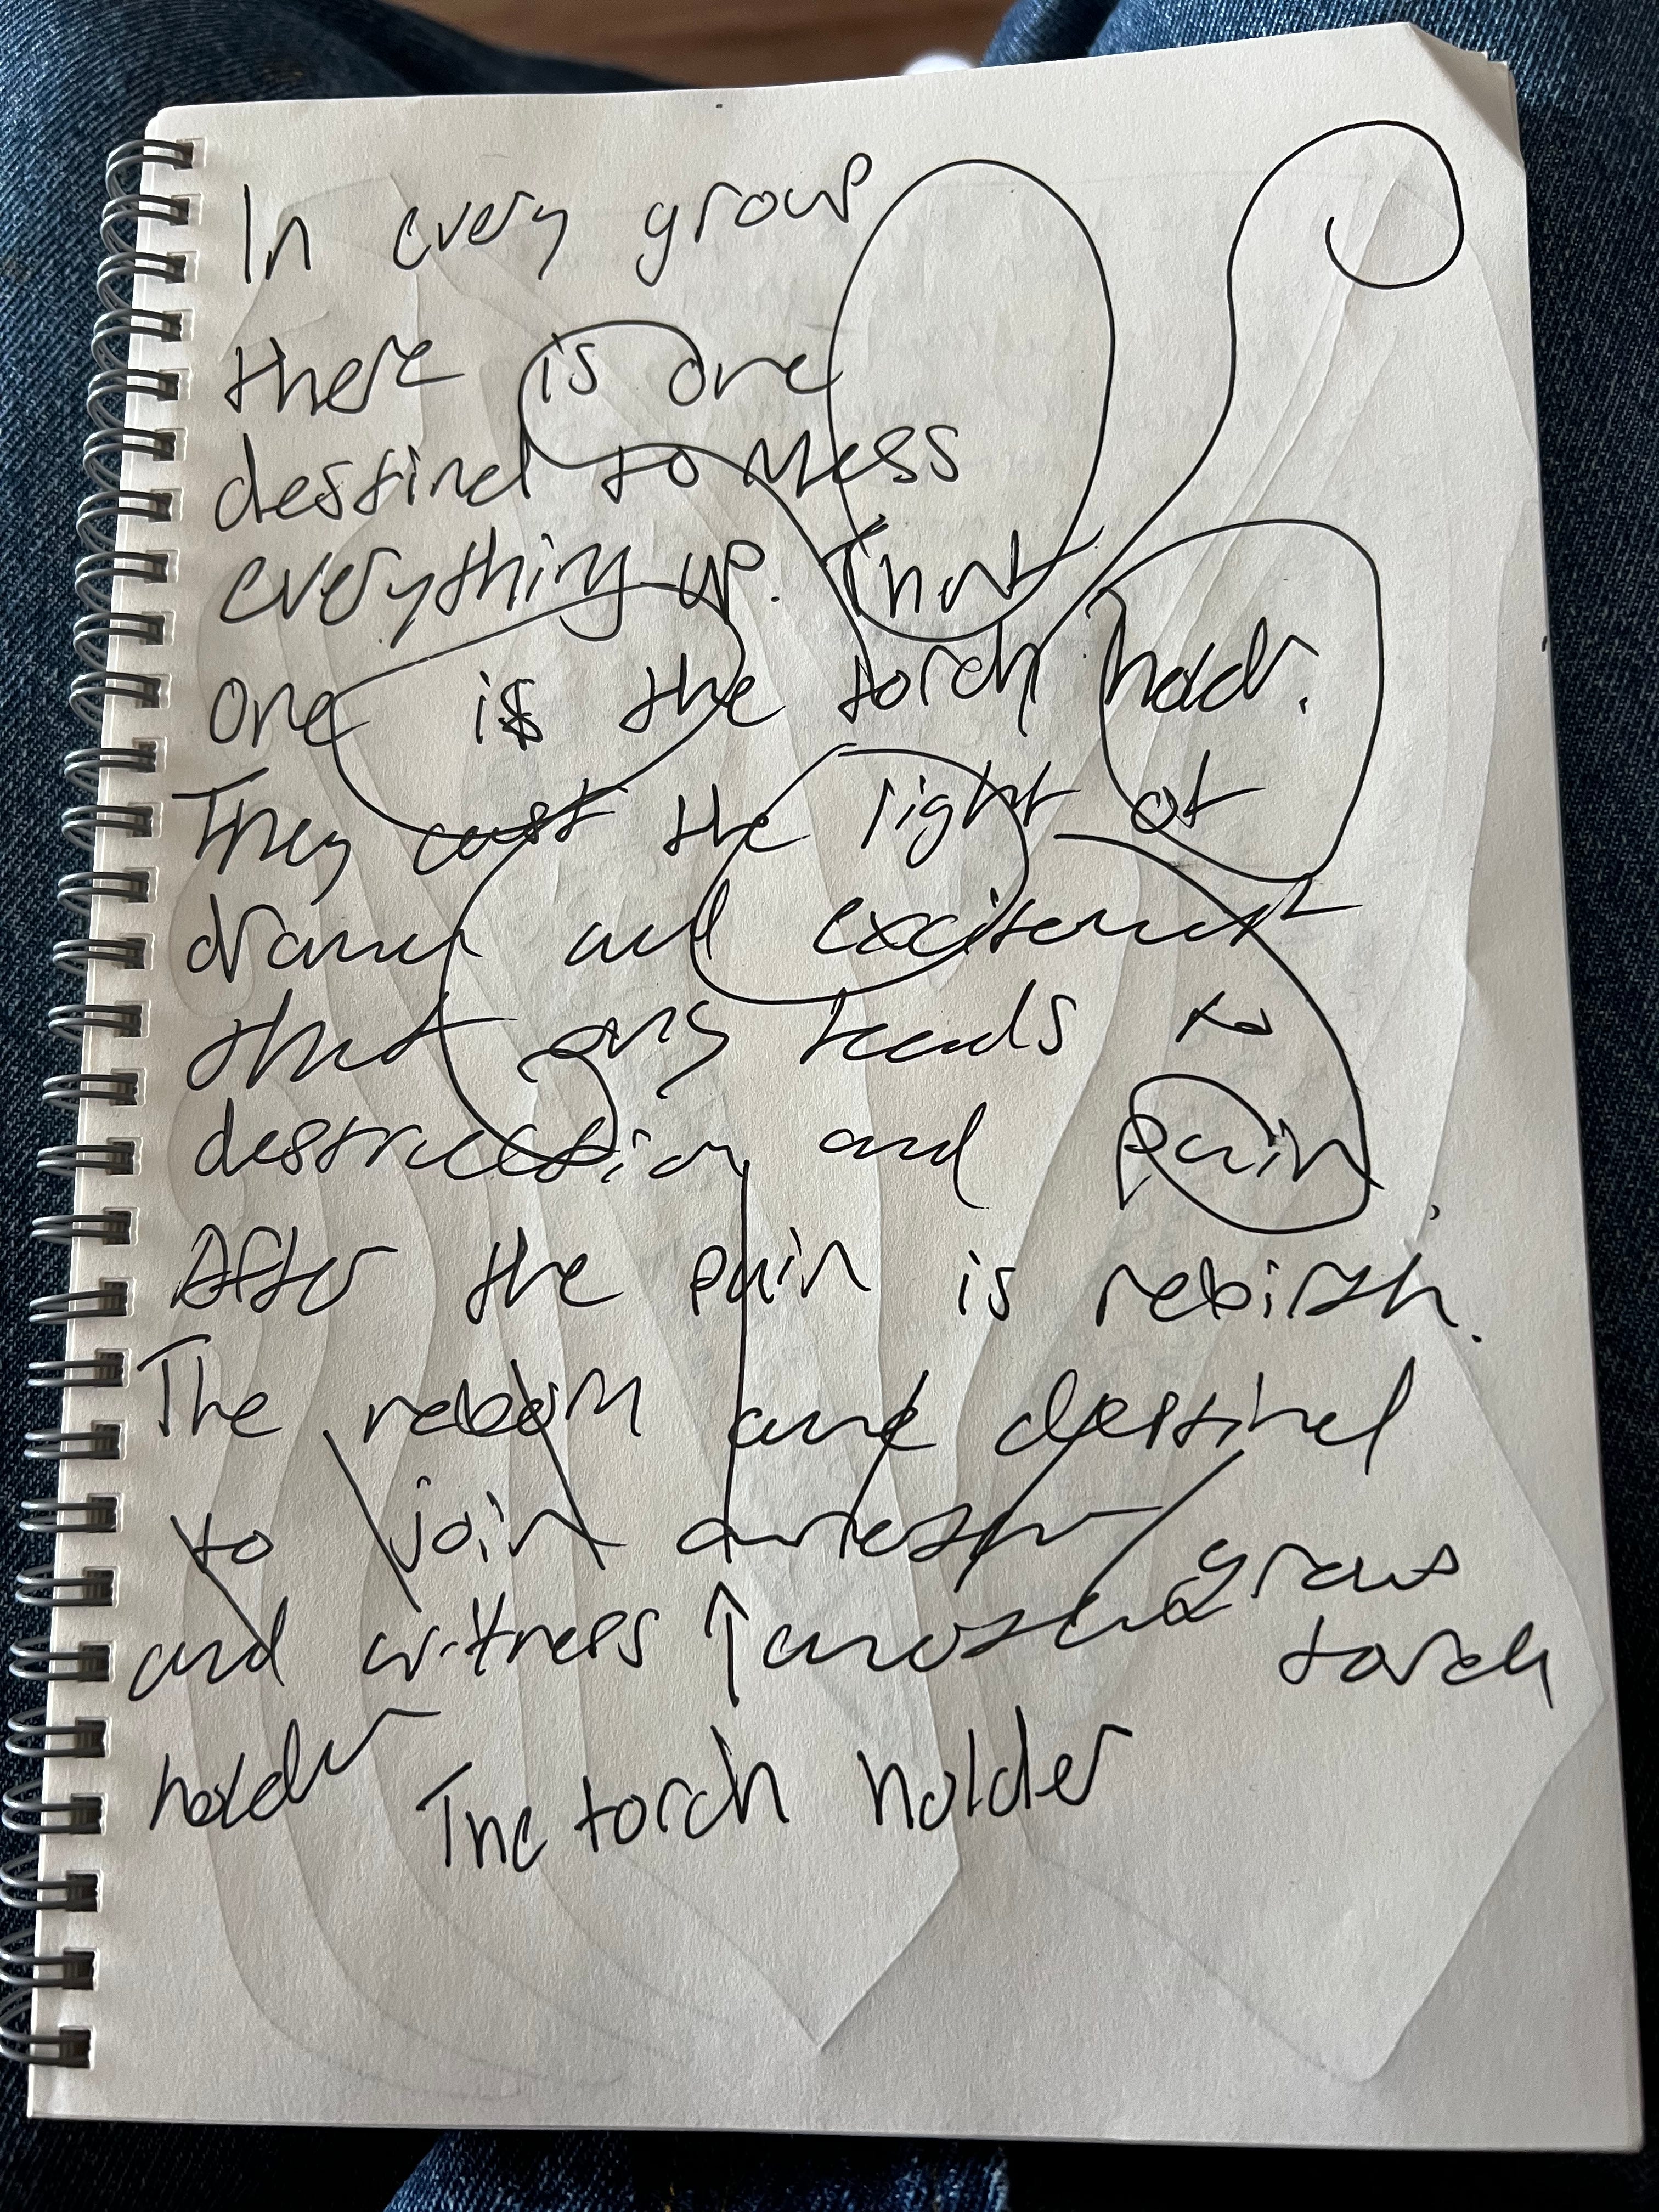 In every group
there is one
destined to mess
everything up. That
one is the torch holdr.
They cast the light of
drama and excitement
that only leads to
destruction and pain.
After the pain is rebirth.
The reborn are destined
to join another group
and witness another torch
holder
The torch holder